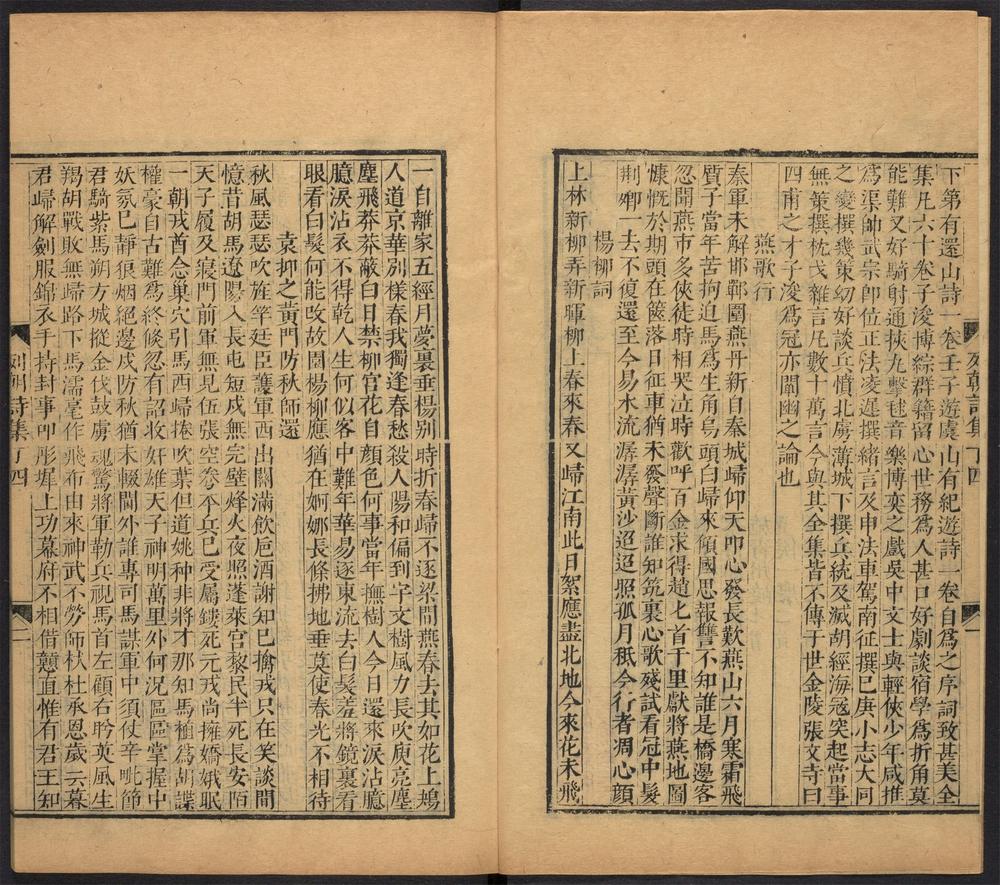 下第有還山詩一卷壬子遊虞山有紀遊詩一卷自爲之序詞致甚美全
集凡六十卷子浚博綜群籍留心世務爲人甚口好劇談宿學爲折角莫
能難又好騎射通挾九擊毬音樂博奕之戲吳中文士與輕俠少年咸推
爲渠帥武宗卽位正法凌遲撰緒言及申法車駕南征撰巳庚小志大同
之變撰幾策幼好談兵憤北虜薄城下撰兵統及滅胡經海寇突起當事
無策撰枕戈雜言凡數十萬言今與其全集皆不傳于世金陵張文寺曰
四甫之才子浚爲冠亦闡幽之論也
燕歌行
秦軍未解邯鄲圍燕丹新自秦城歸仰天叩心發長歎燕山六月寒霜飛
質子當年苦拘迫馬爲生角烏頭白歸來傾國思報讐不知誰是橋邊客
忽聞燕市多俠徒時相哭泣時歡呼百金求得趙匕首千里獻將燕地圖
慷慨於期頭在篋落日征車猶未發聲斷誰知筑裏心歌殘試看冠中髮
荆卿一去不復還至今易水流潺潺黃沙迢迢照孤月秪今行者凋心顏
楊柳詞
上林新柳弄新暉柳上春來春又歸江南此日絮應盡北地今來花未飛
列朝詩集 丁四
一
一自離家五經月夢裏垂楊別時折春歸不逐梁間燕春去其如花上鳩
人道京華別樣春我獨逢春愁殺人陽和偏到宇文樹風力長吹庾亮塵
塵飛莽莽蔽白日禁柳宮花自顏色何事當年撫樹人今日還來淚沾臆
臆淚沾衣不得乾人生何似客中難年華易逐東流去白髮羞將鏡裏看
眼看白髮何能改故園楊柳應猶在婀娜長條拂地垂莫使春光不相待
袁抑之黃門防秋師還
秋風瑟瑟吹旌竿廷臣護軍西出關滿飲卮酒謝知巳擒戎只在笑談間
憶昔胡馬遼陽入長屯短戍無完壁烽火夜照蓬萊宮黎民半死長安陌
天子履及寢門前軍無見伍張空弮本兵已受屬鏤死元戎尚擁嬌娥眠
一朝戎酋念巢穴引馬西歸捲吹葉但道姚种非將才那知馬植爲胡諜
權豪自古難爲終倏忽有詔收奸雄天子神明萬里外何況區區掌握中
妖氛巳靜狼烟絕邊戍防秋猶未輟閫外誰專司馬謀軍中須仗辛毗節
君騎紫馬朔方城摐金伐鼓虜魂驚將軍勒兵視馬首左顧右盻英風生
羯胡戰敗無歸路下馬濡毫作飛布由來神武不勞師杕杜承恩歲云暮
君歸解劍服錦衣手持封事叩彤墀上功幕府不相借戇直惟有君王知
列朝詩集 丁四
二